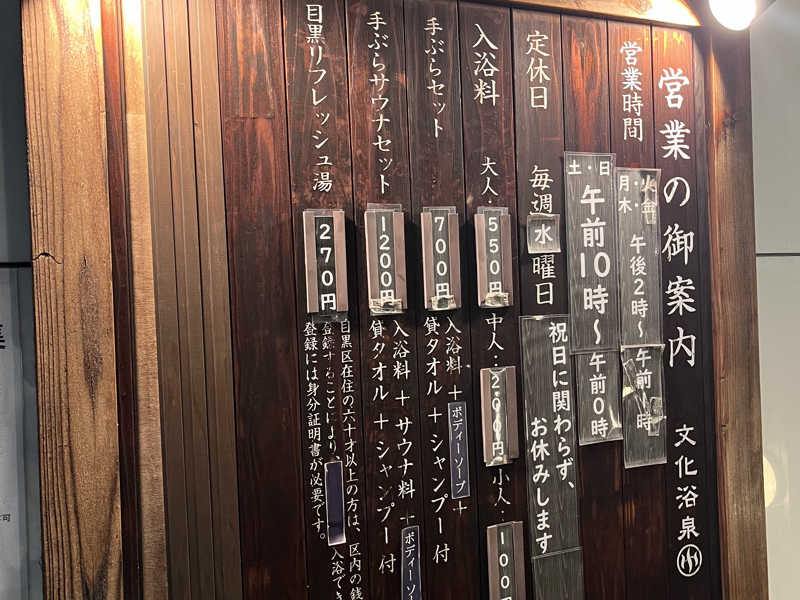 営業の御案内 文化浴泉
営業時間
月・火・
木・金
午後2時〜
午前 時
土・日
午前10時〜
午前0時
定休日 毎週水曜日
祝日に関わらず、
お休みします
入浴料 大人：550円 中人：200円 小人：100
手ぶらセット 700円 入浴料＋ボディーソープ＋
貸タオル＋シャンプー付
手ぶらサウナセット 1200円 入浴料＋サウナ料＋ボディーソー
貸タオル＋シャンプー付
目黒リフレッシュ湯 270円 目黒区在住の六十才以上の方は、区内の銭
登録することにより、 入浴でき
登録には身分証明書が必要です。